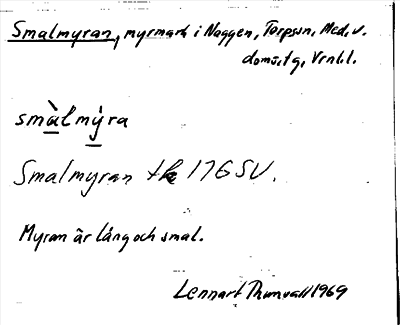 Smalmyran, myrmark i Naggen, Torpssn, Med. v.
doms.tg, Vrnl.l.
smàlmýra
Smalmyran tk 17G SV.
Myran är lång och smal.
Lennart Thunvall 1969